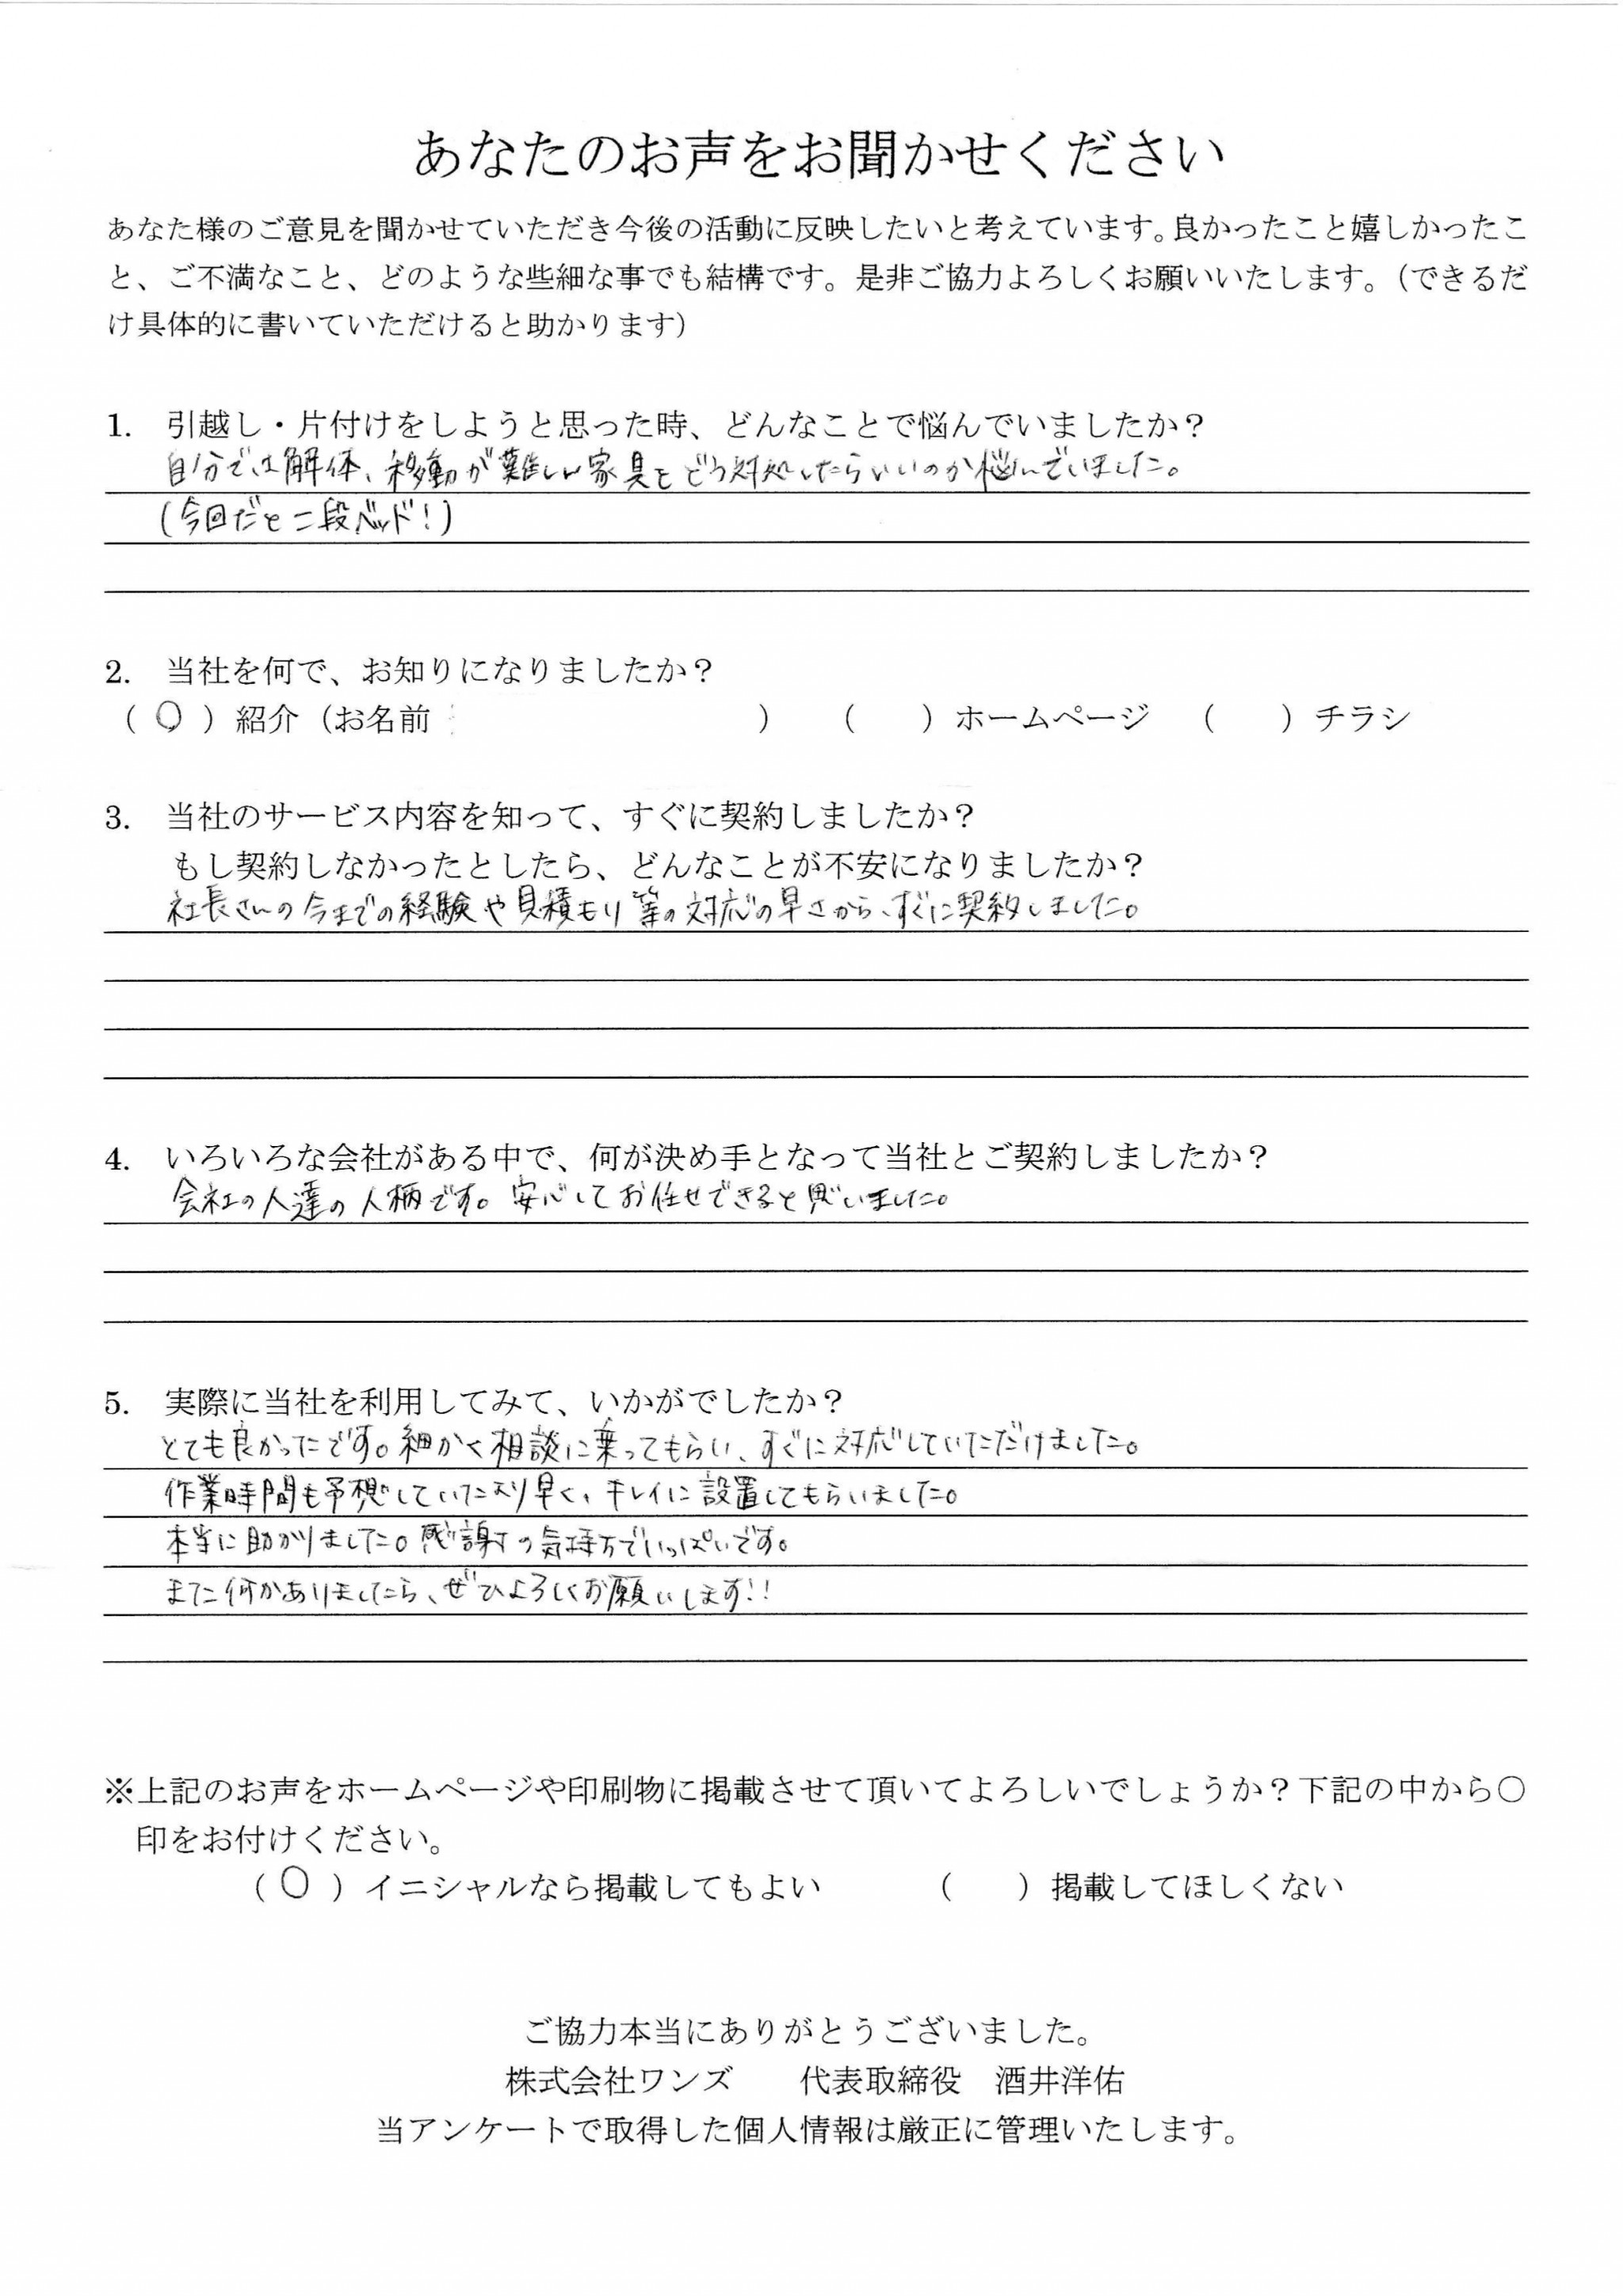 あなたのお声をお聞かせください
あなた様のご意見を聞かせていただき今後の活動に反映したいと考えています。良かったこと嬉しかったこ
と、ご不満なこと、どのような些細な事でも結構です。是非ご協力よろしくお願いいたします。（できるだ
け具体的に書いていただけると助かります）
1. 引越し・片付けをしようと思った時、どんなことで悩んでいましたか？
自分では解体、移動が難しい家具をどう対処したらいいのか悩んでいました。
(今回だと二段ベッド！)
2. 当社を何で、お知りになりましたか？
（ ○ ）紹介（お名前 ） （ ）ホームページ （ ）チラシ
3. 当社のサービス内容を知って、すぐに契約しましたか？
もし契約しなかったとしたら、どんなことが不安になりましたか？
社長さんの今までの経験や見積もり等の対応の早さから、すぐに契約しました。
4. いろいろな会社がある中で、何が決め手となって当社とご契約しましたか？
会社の人達の人柄です。安心してお任せできると思いました。
5. 実際に当社を利用してみて、いかがでしたか？
とても良かったです。細かく相談に乗ってもらい、すぐに対応していただけました。
作業時間も予想していたより早く、キレイに設置してもらいました。
本当に助かりました。感謝の気持ちでいっぱいです。
また何かありましたら、ぜひよろしくお願いします!!
※上記のお声をホームページや印刷物に掲載させて頂いてよろしいでしょうか？下記の中から○
印をお付けください。
（ ○ ）イニシャルなら掲載してもよい （ ）掲載してほしくない
ご協力本当にありがとうございました。
株式会社ワンズ 代表取締役 酒井洋佑
当アンケートで取得した個人情報は厳正に管理いたします。